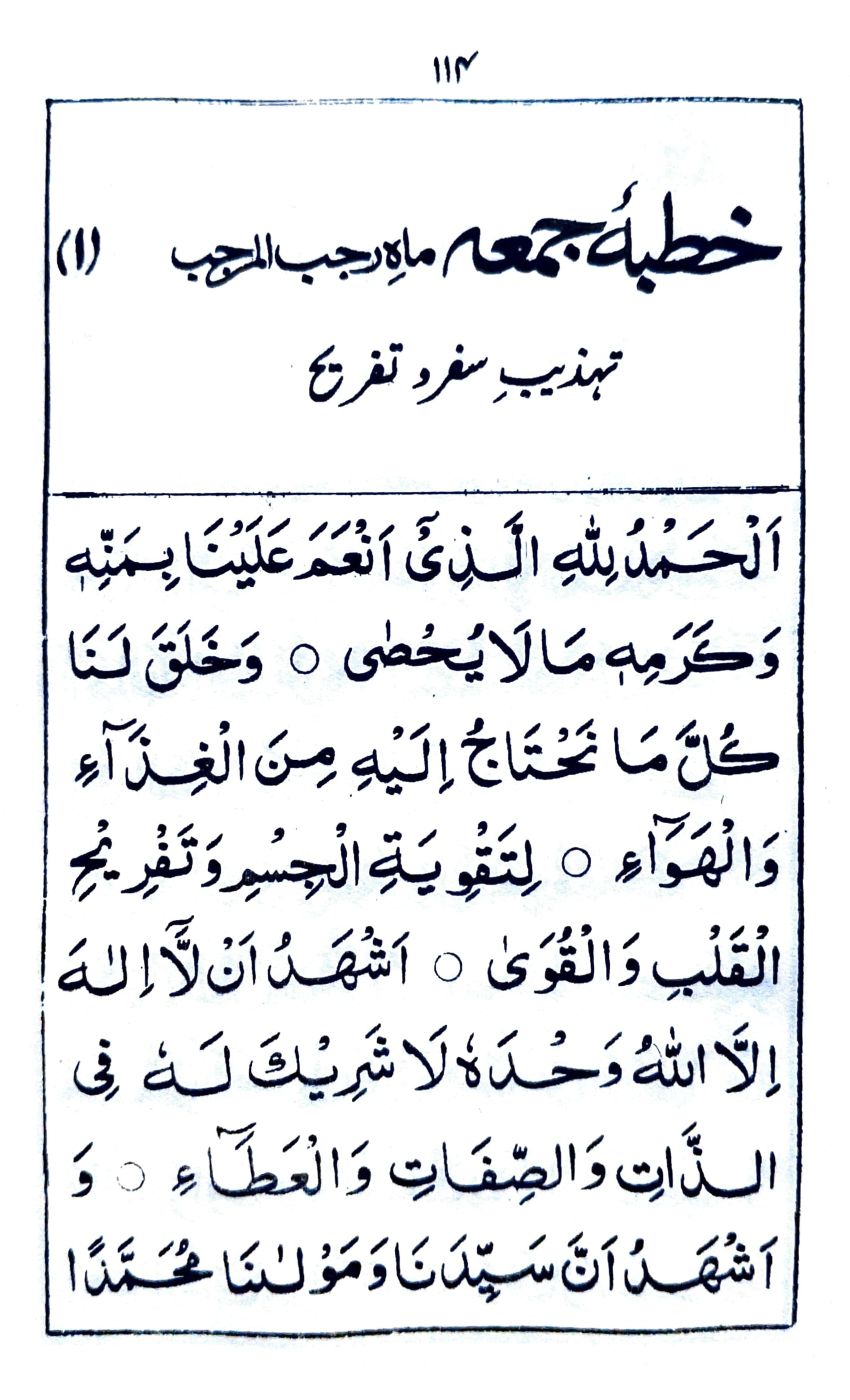 ۱۱۴
خطبۂ جمعہ ماہِ رجب المرجب (۱)
تہذیبِ سفر و تفریح
اَلْحَمْدُ لِلّٰهِ الَّذِیْٓ اَنْعَمَ عَلَیْنَا بِمَنِّهٖ
وَكَرَمِهٖ مَا لَا یُحْصٰی ○ وَخَلَقَ لَنَا
كُلَّ مَا نَحْتَاجُ اِلَیْهِ مِنَ الْغِذَآءِ
وَالْهَوَآءِ ○ لِتَقْوِیَةِ الْجِسْمِ وَتَفْرِیْحِ
الْقَلْبِ وَالْقُوٰی ○ اَشْهَدُ اَنْ لَّآ اِلٰهَ
اِلَّا اللّٰهُ وَحْدَهٗ لَا شَرِیْكَ لَهٗ فِی
الذَّاتِ وَالصِّفَاتِ وَالْعَطَآءِ ○ وَ
اَشْهَدُ اَنَّ سَیِّدَنَا وَمَوْلٰنَا مُحَمَّدًا